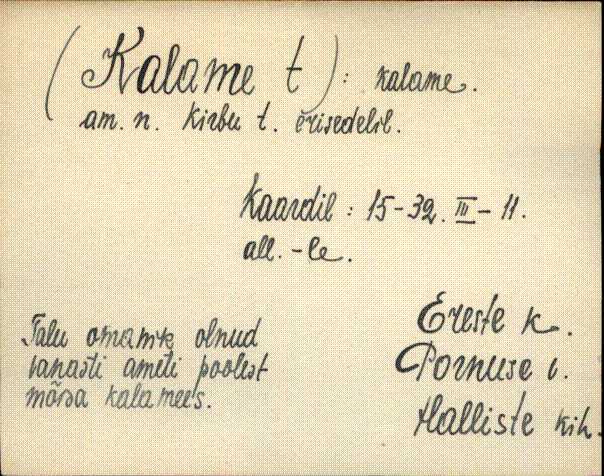 (Kalame t): kalame.
am. n. Kirbu t. erisedelil.
Kaardil: 15-32. III - 11.
all. -le.
Talu omanik olnud
vanasti ameti poolest
mõrsa kalamees.
Ereste k.
Pornuse v.
Halliste kih.